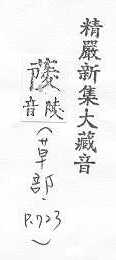 精嚴新集大藏音
蔆
陵
音
(草部.
P.723)